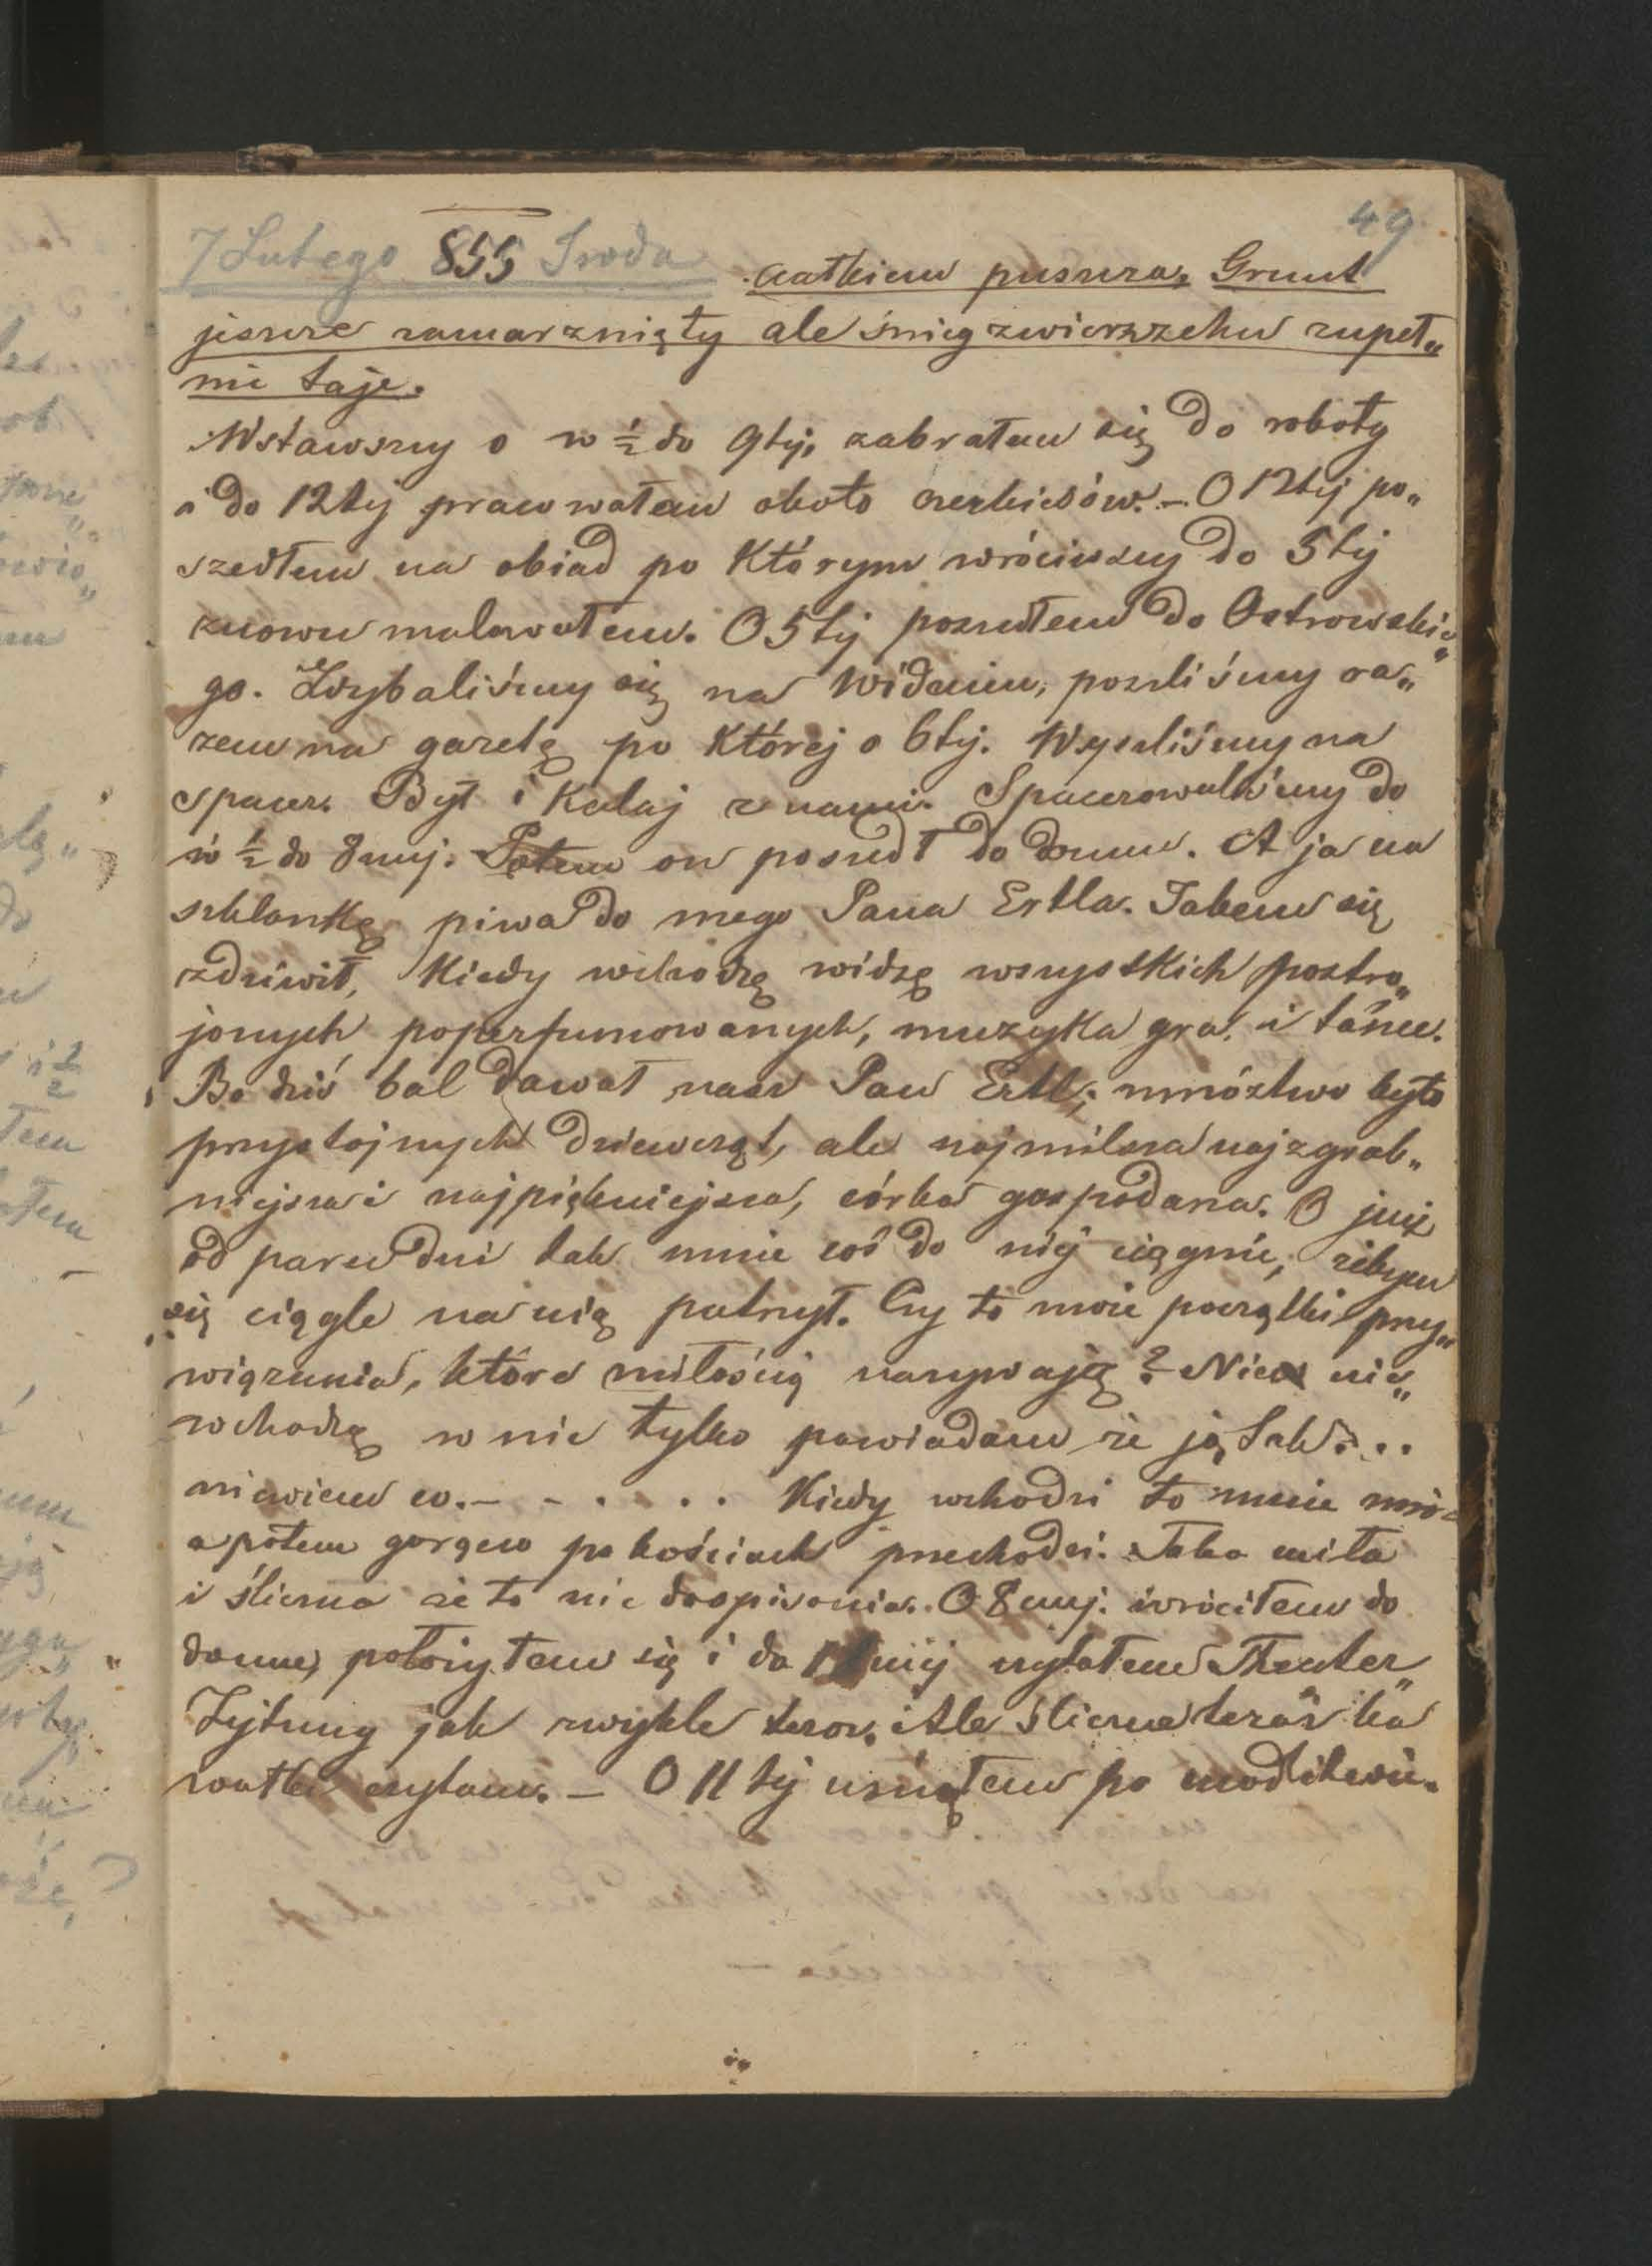 49
7 Lutego 855 Sroda całkiem puszcza. Grunt
jeszcze zamarznięty ale śnieg zwierzchu zupeł„
nie taje.
Wstawszy o w ½ do 9tej, zabrałem się do roboty
a do 12tej pracowałem około czerkiesów. – O 12tej po„
szedłem na obiad po którym wróciwszy do 5tej
znowu malowałem. O 5tej poszedłem do Ostrowskie„
go. Zdybaliśmy się na Widaniu, poszliśmy ra„
zem na gazetę po której o 6tej. Wyszliśmy na
spacer. Był i Kalaj z nami. Spacerowaliśmy do
w ½ do 8mej. Potem on poszedł do domu. A ja na
szklankę piwa do mego Pana Ertla. Takem się
zdziwił, kiedy wchodzę widzę wszystkich postro„
jonych poperfumowanych, muzyka gra i tańce.
Bo dziś bal dawał nasz Pan Ertl; mnóztwo było
przystojnych dziewcząt, ale najmilsza najzgrab„
niejsza i najpiękniejsza, córka gospodarza. O już
od paru dni tak mnie coś do niej ciągnie, żebym
się ciągle na nią patrzył. Czy to może początki przy„
wiązania, które miłością nazywają? Nie nie„
wchodzę w nic tylko powiadam że ją tak...
niewiem co. – - . . . . Kiedy wchodzi to mnie mróz
a potem gorąco po kościach przechodzi. Taka miła
i śliczna że to nie doopisania. O 8mej. wróciłem do
domu, położyłem się i do 11 czytałem Theater„
Zejtung jak zwykle teraz. Ale śliczne teraz ka
wałki czytam. – O 11tej usnąłem po modlitwie.